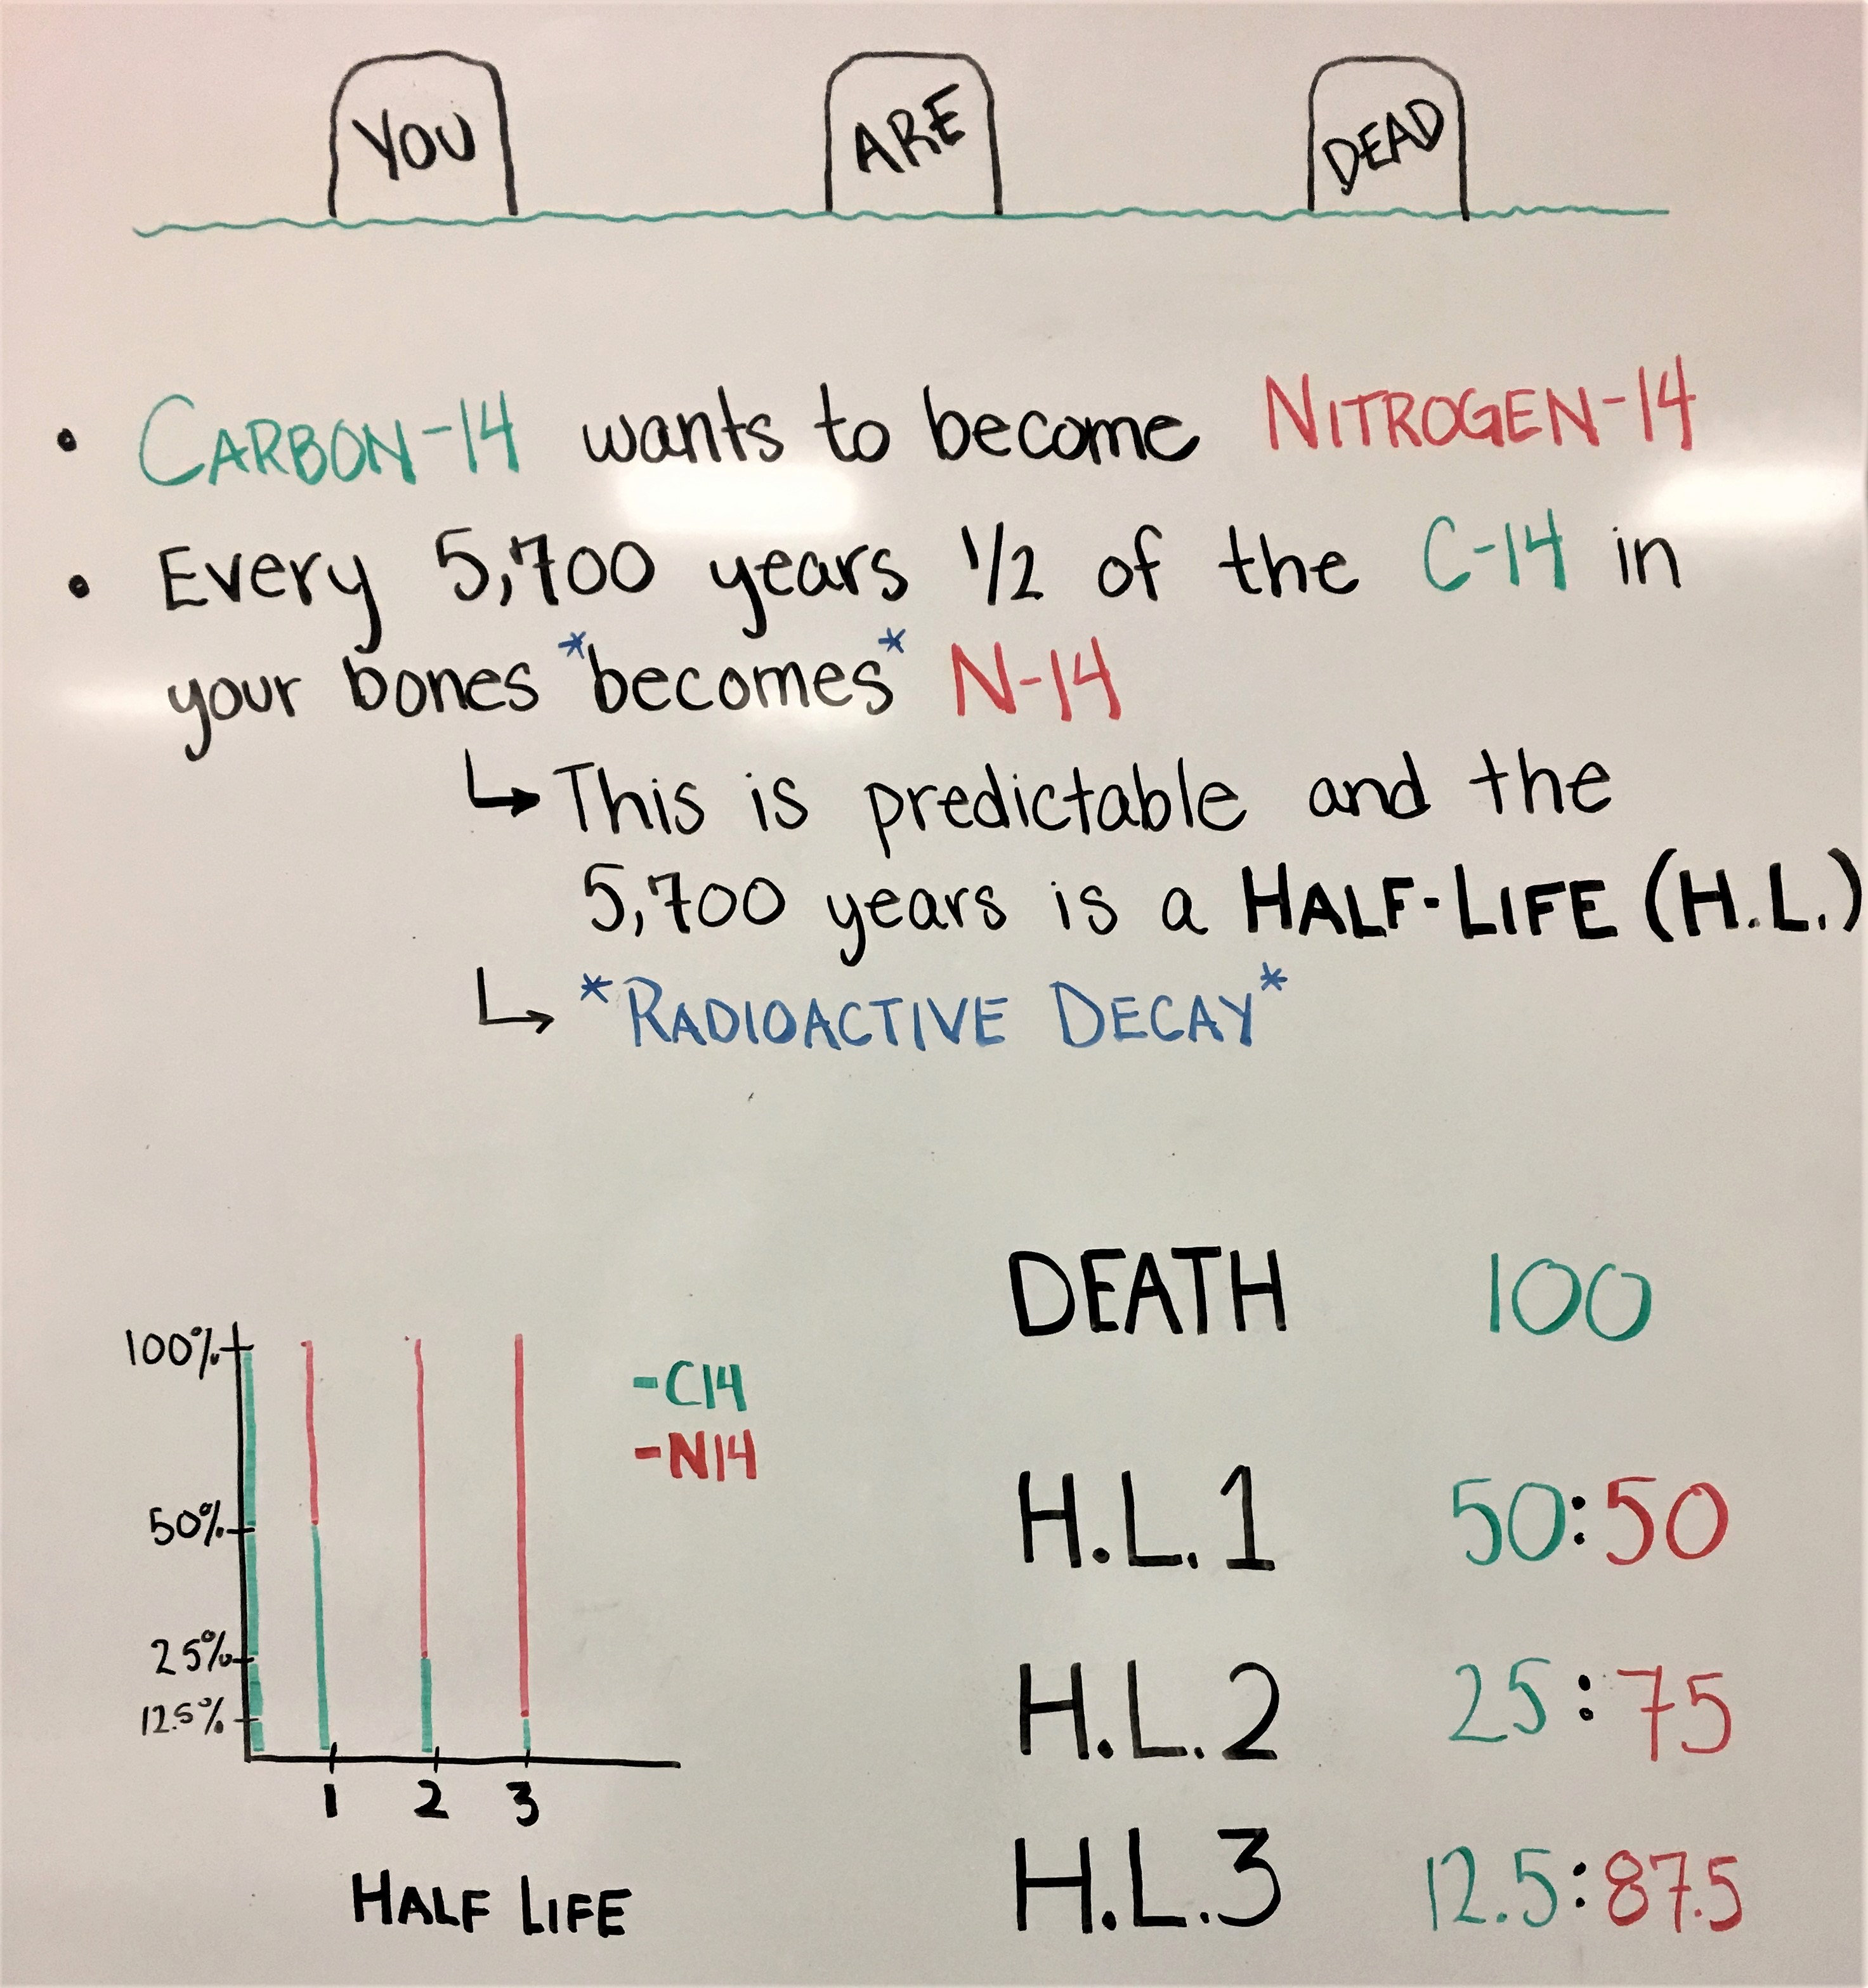 YOU ARE DEAD
• CARBON-14 wants to become NITROGEN-14
• Every 5,700 years 1/2 of the C-14 in
your bones *becomes* N-14
↳ This is predictable and the
5,700 years is a HALF-LIFE (H.L.)
↳ *RADIOACTIVE DECAY*
DEATH 100
H.L.1 50:50
H.L.2 25:75
H.L.3 12.5:87.5
100%
50%
25%
12.5%
-C14
-N14
1 2 3
HALF LIFE